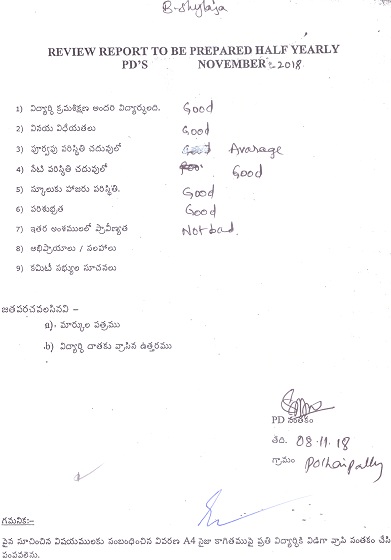 B. Shylaja
REVIEW REPORT TO BE PREPARED HALF YEARLY
PD'S NOVEMBER 2018
1) విద్యార్థి క్రమశిక్షణ అందరి విద్యార్థులది. Good
2) వినయ విధేయతలు Good
3) పూర్వపు పరిస్థితి చదువులో Avarage
4) నేటి పరిస్థితి చదువులో Good
5) స్కూలుకు హాజరు పరిస్థితి. Good
6) పరిశుభ్రత Good
7) ఇతర అంశములలో ప్రావీణ్యత Not bad.
8) అభిప్రాయాలు / సలహాలు
9) కమిటీ సభ్యుల సూచనలు
జతపరచవలసినవి –
a)- మార్కుల పత్రము
b) విద్యార్థి దాతకు వ్రాసిన ఉత్తరము
PD సంతకం
తేది. 08.11.18
గ్రామం
గమనిక:-
పైన సూచించిన విషయములకు సంబంధించిన వివరణ A4 సైజు కాగితముపై ప్రతి విద్యార్థికి విడిగా వ్రాసి సంతకం చేసి
పంపవలెను.